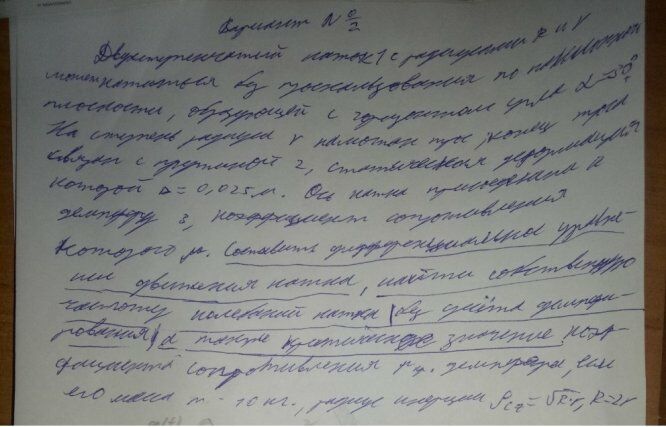 Вариант № 2
Двухступенчатый каток 1 с радиусами R и r
может кататься без проскальзывания по наклонной
плоскости, образующей с горизонтом угол α = 30°.
На ступень радиуса r намотан трос, конец троса
связан с пружиной 2, статическая деформация
которой Δ = 0,025 м. Ось катка присоединена к
демпферу 3, коэффициент сопротивления
которого μ. Составить дифференциальное уравне-
ние движения катка, найти собственную
частоту колебаний катка (без учёта демпфи-
рования) а также критическое значение коэф-
фициента сопротивления μ демпфера, если
его масса m = 10 кг., радиус инерции = √R·r, R=2r